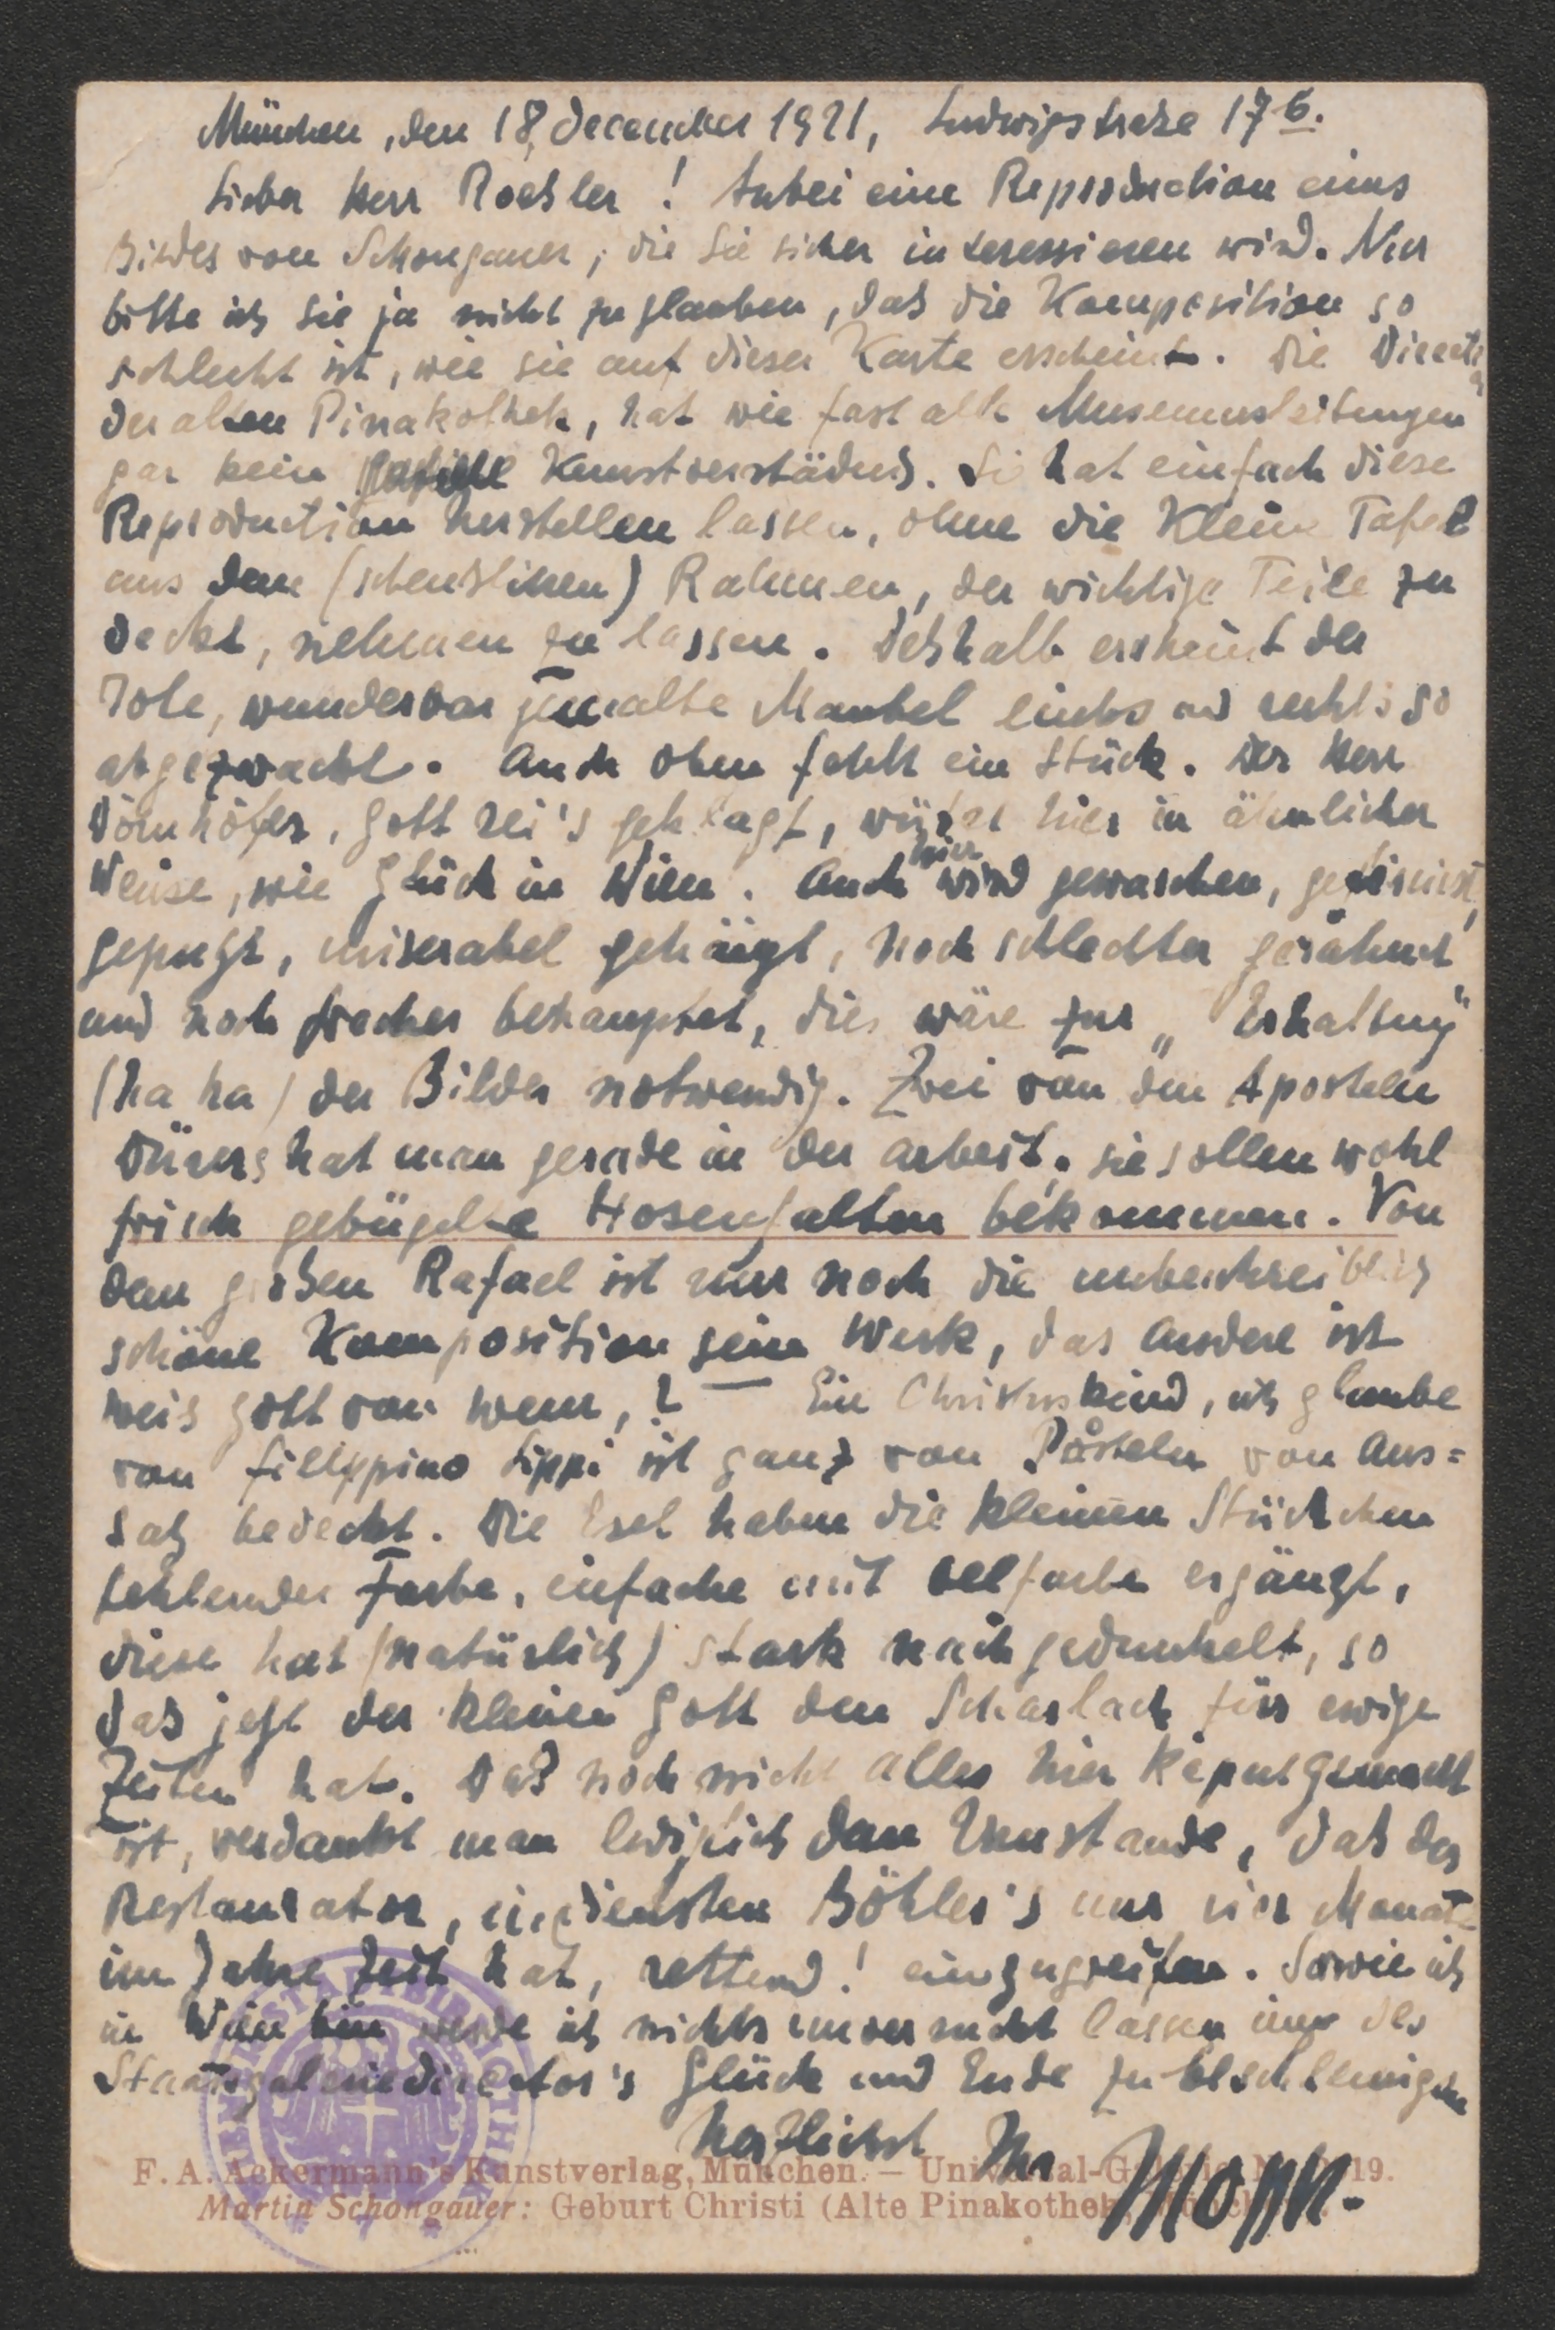 München, den 18. December 1921, Ludwigstraße 17 6.
Lieber Herr Roeßler! Anbei eine Reproduction eines
Bildes von Schongauer, die Sie sicher interessieren wird. Nur
bitte ich Sie ja nicht zu glauben, daß die Komposition so
schlecht ist, wie sie auf dieser Karte erscheint. Die Direction
der alten Pinakothek, hat wie fast alle Museumsleitungen
gar kein Kunstverständnis. Sie hat einfach diese
Reproduction herstellen lassen, ohne die kleine Tafel
aus dem (scheuslichen) Rahmen, der wichtige Teile zu
deckt, nehmen zu lassen. Deshalb erscheint der
rote, wunderbar gemalte Mantel links und rechts so
abgezwackt. Auch oben fehlt ein Stück. Der Herr
Dörnhöfer, Gott sei's geklagt, wütet hier in ähnlicher
Weise, wie Glück in Wien. Auch hier wird gewaschen, gefirnist,
geputzt, miserabel gehängt, noch schlechter gerahmt
und noch frecher behauptet, dies wäre zur „Erhaltung"
(ha ha) der Bilder notwendig. Zwei von den Aposteln
Dürers hat man gerade in der Arbeit, sie sollen wohl
frisch gebügelte Hosenfalten bekommen. Von
dem großen Rafael ist nur noch die unbeschreiblich
schöne Komposition sein Werk, das Andere ist
weis Gott von wem,? Ein Christuskind, ich glaube
von Fillippino Lippi ist ganz von Pusteln von Aus=
satz bedeckt. Die Esel haben die kleinen Stückchen
fehlender Farbe, einfache mit Oelfarbe ergänzt,
diese hat (natürlich) stark nachgedunkelt, so
das jetzt der kleine Gott den Scharlach für ewige
Zeiten hat. Daß noch nicht alles hier kaput gemacht
ist, verdankt man lediglich dem Umstande, daß der
Restaurator, in diensten Böhler's nur vier Monate
im Jahre Zeit hat, rettend! einzugreifen. Sowie ich
in Wien bin werde ich nichts unversucht lassen um des
Staatsgaleriedirectors's Glück und Ende zu beschleunigen
herzlichst Ihr Mopp.
F. A. Ackermann's Kunstverlag, München. — Universal-Galerie
Martin Schongauer: Geburt Christi (Alte Pinakothek, München).